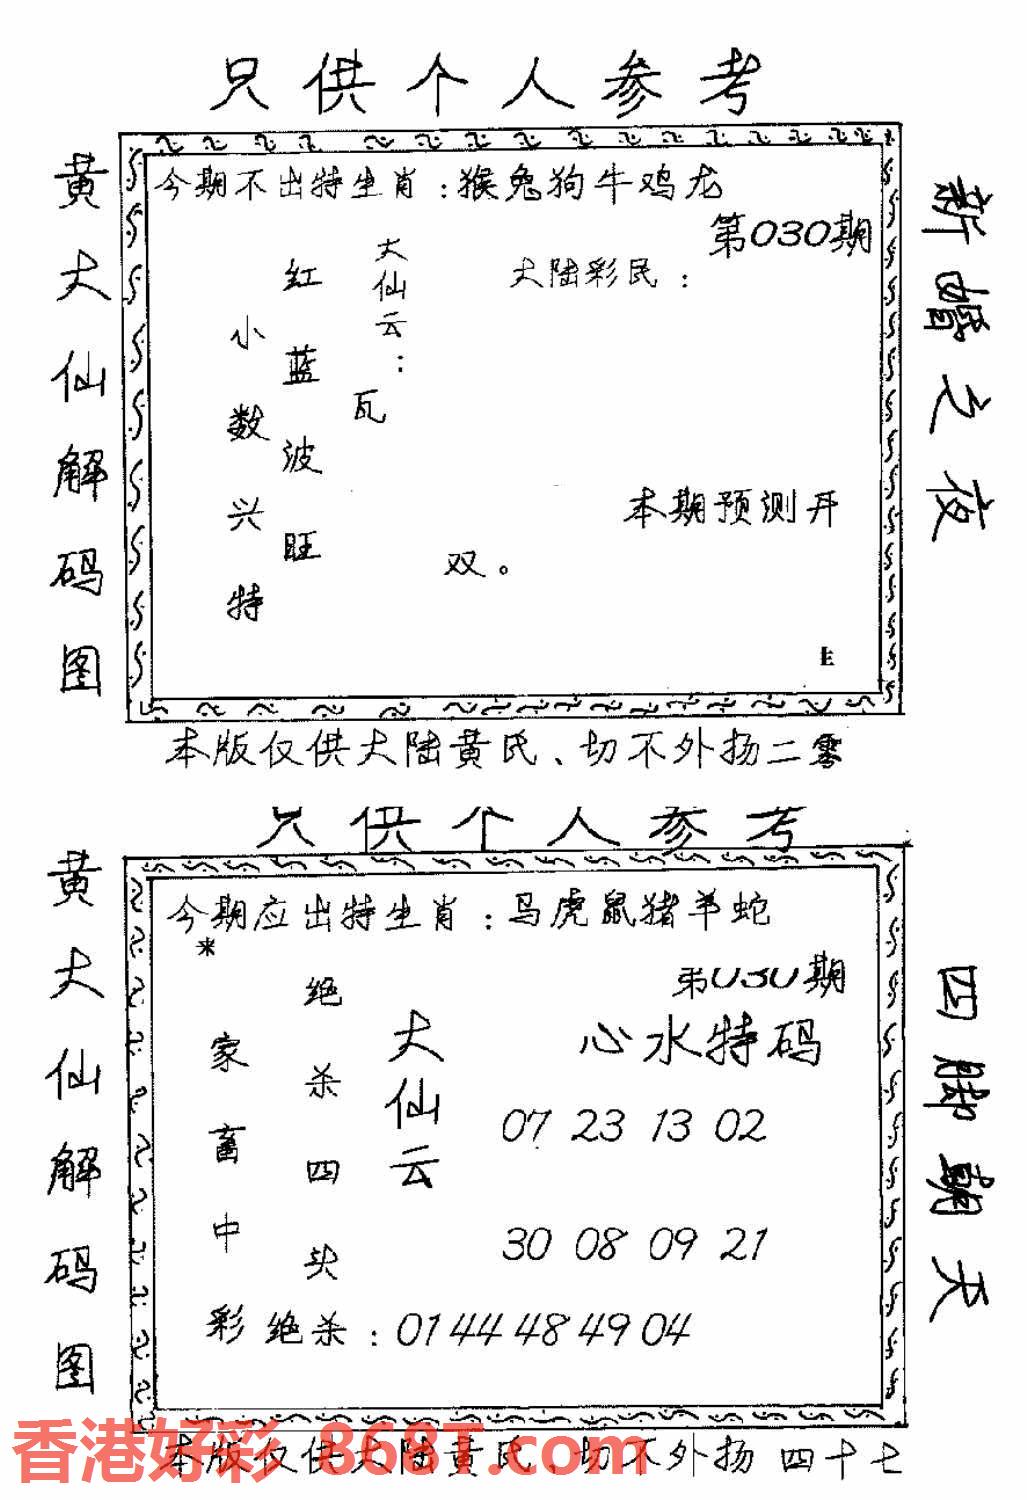 只供个人参考
黄大仙解码图
今期不出特生肖：猴兔狗牛鸡龙
第030期
大陆彩民：
大仙云：
瓦
红蓝波旺
小数兴特
本期预测开
双。
新婚之夜
本版仅供大陆黄氏、切不外扬二零
只供个人参考
黄大仙解码图
今期应出特生肖：马虎鼠猪羊蛇
*
第030期
心水特码
大仙云
绝杀四头
家畜中彩
07 23 13 02
30 08 09 21
绝杀：01 44 48 49 04
四脚朝天
本版仅供大陆黄氏、切不外扬四十七
香港好彩 868T.com